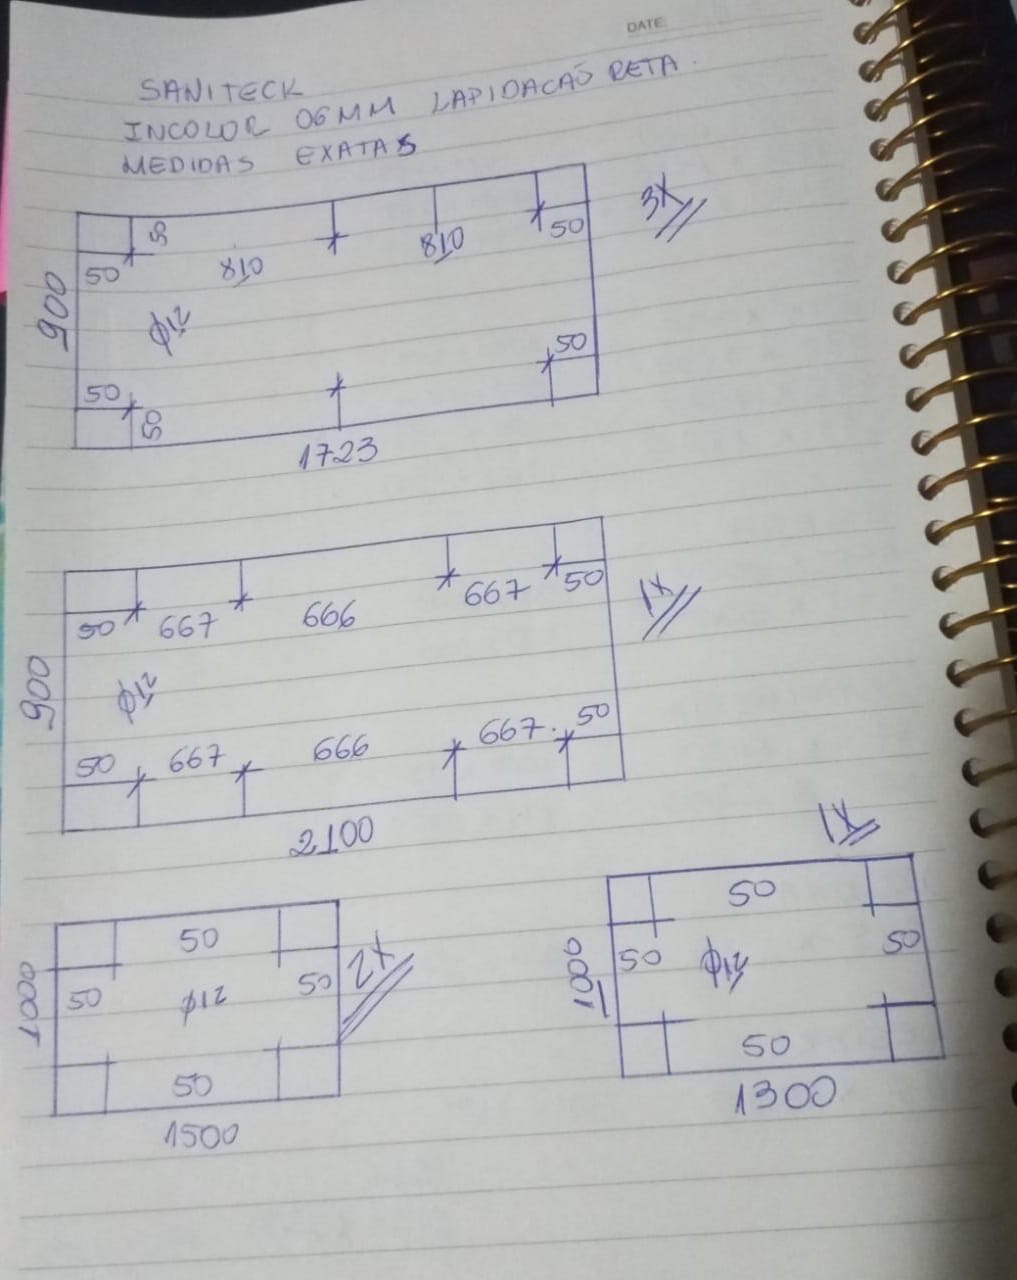 DATE:
SANITECK
INCOLOR 06MM LAPIDACAÕ RETA.
MEDIDAS EXATAS
3X
50
50
810
810
50
900
ϕ12
50
50
50
1723
1X
50
667
666
667
50
900
ϕ12
50
667
666
667.
50
2100
2X
50
50
50
1000
ϕ12
50
1500
1X
50
50
50
1000
ϕ12
50
1300